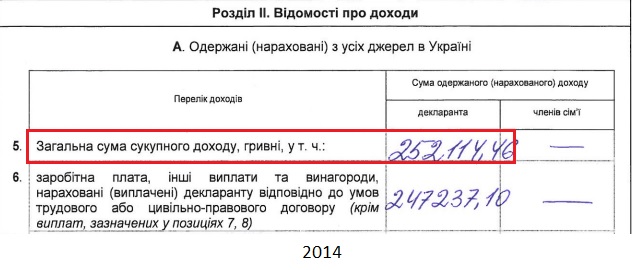 Розділ II. Відомості про доходи
А. Одержані (нараховані) з усіх джерел в Україні
Перелік доходів
Сума одержаного (нарахованого) доходу
декларанта
членів сім'ї
5. Загальна сума сукупного доходу, гривні, у т. ч.: 252114,46 —
6. заробітна плата, інші виплати та винагороди,
нараховані (виплачені) декларанту відповідно до умов
трудового або цивільно-правового договору (крім
виплат, зазначених у позиціях 7, 8)
247237,10 —
2014